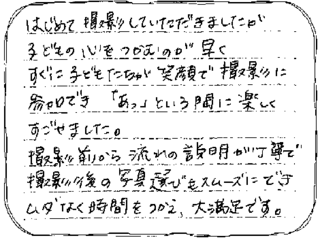 はじめて撮影していただきましたが
子どもの心をつかむのが早く
すぐに子どもたちが笑顔で撮影に
参加でき「あっ」という間に楽しく
すごせました。
撮影前から流れの説明が丁寧で
撮影後の写真選びもスムーズにでき
ムダなく時間をつかえ、大満足です。